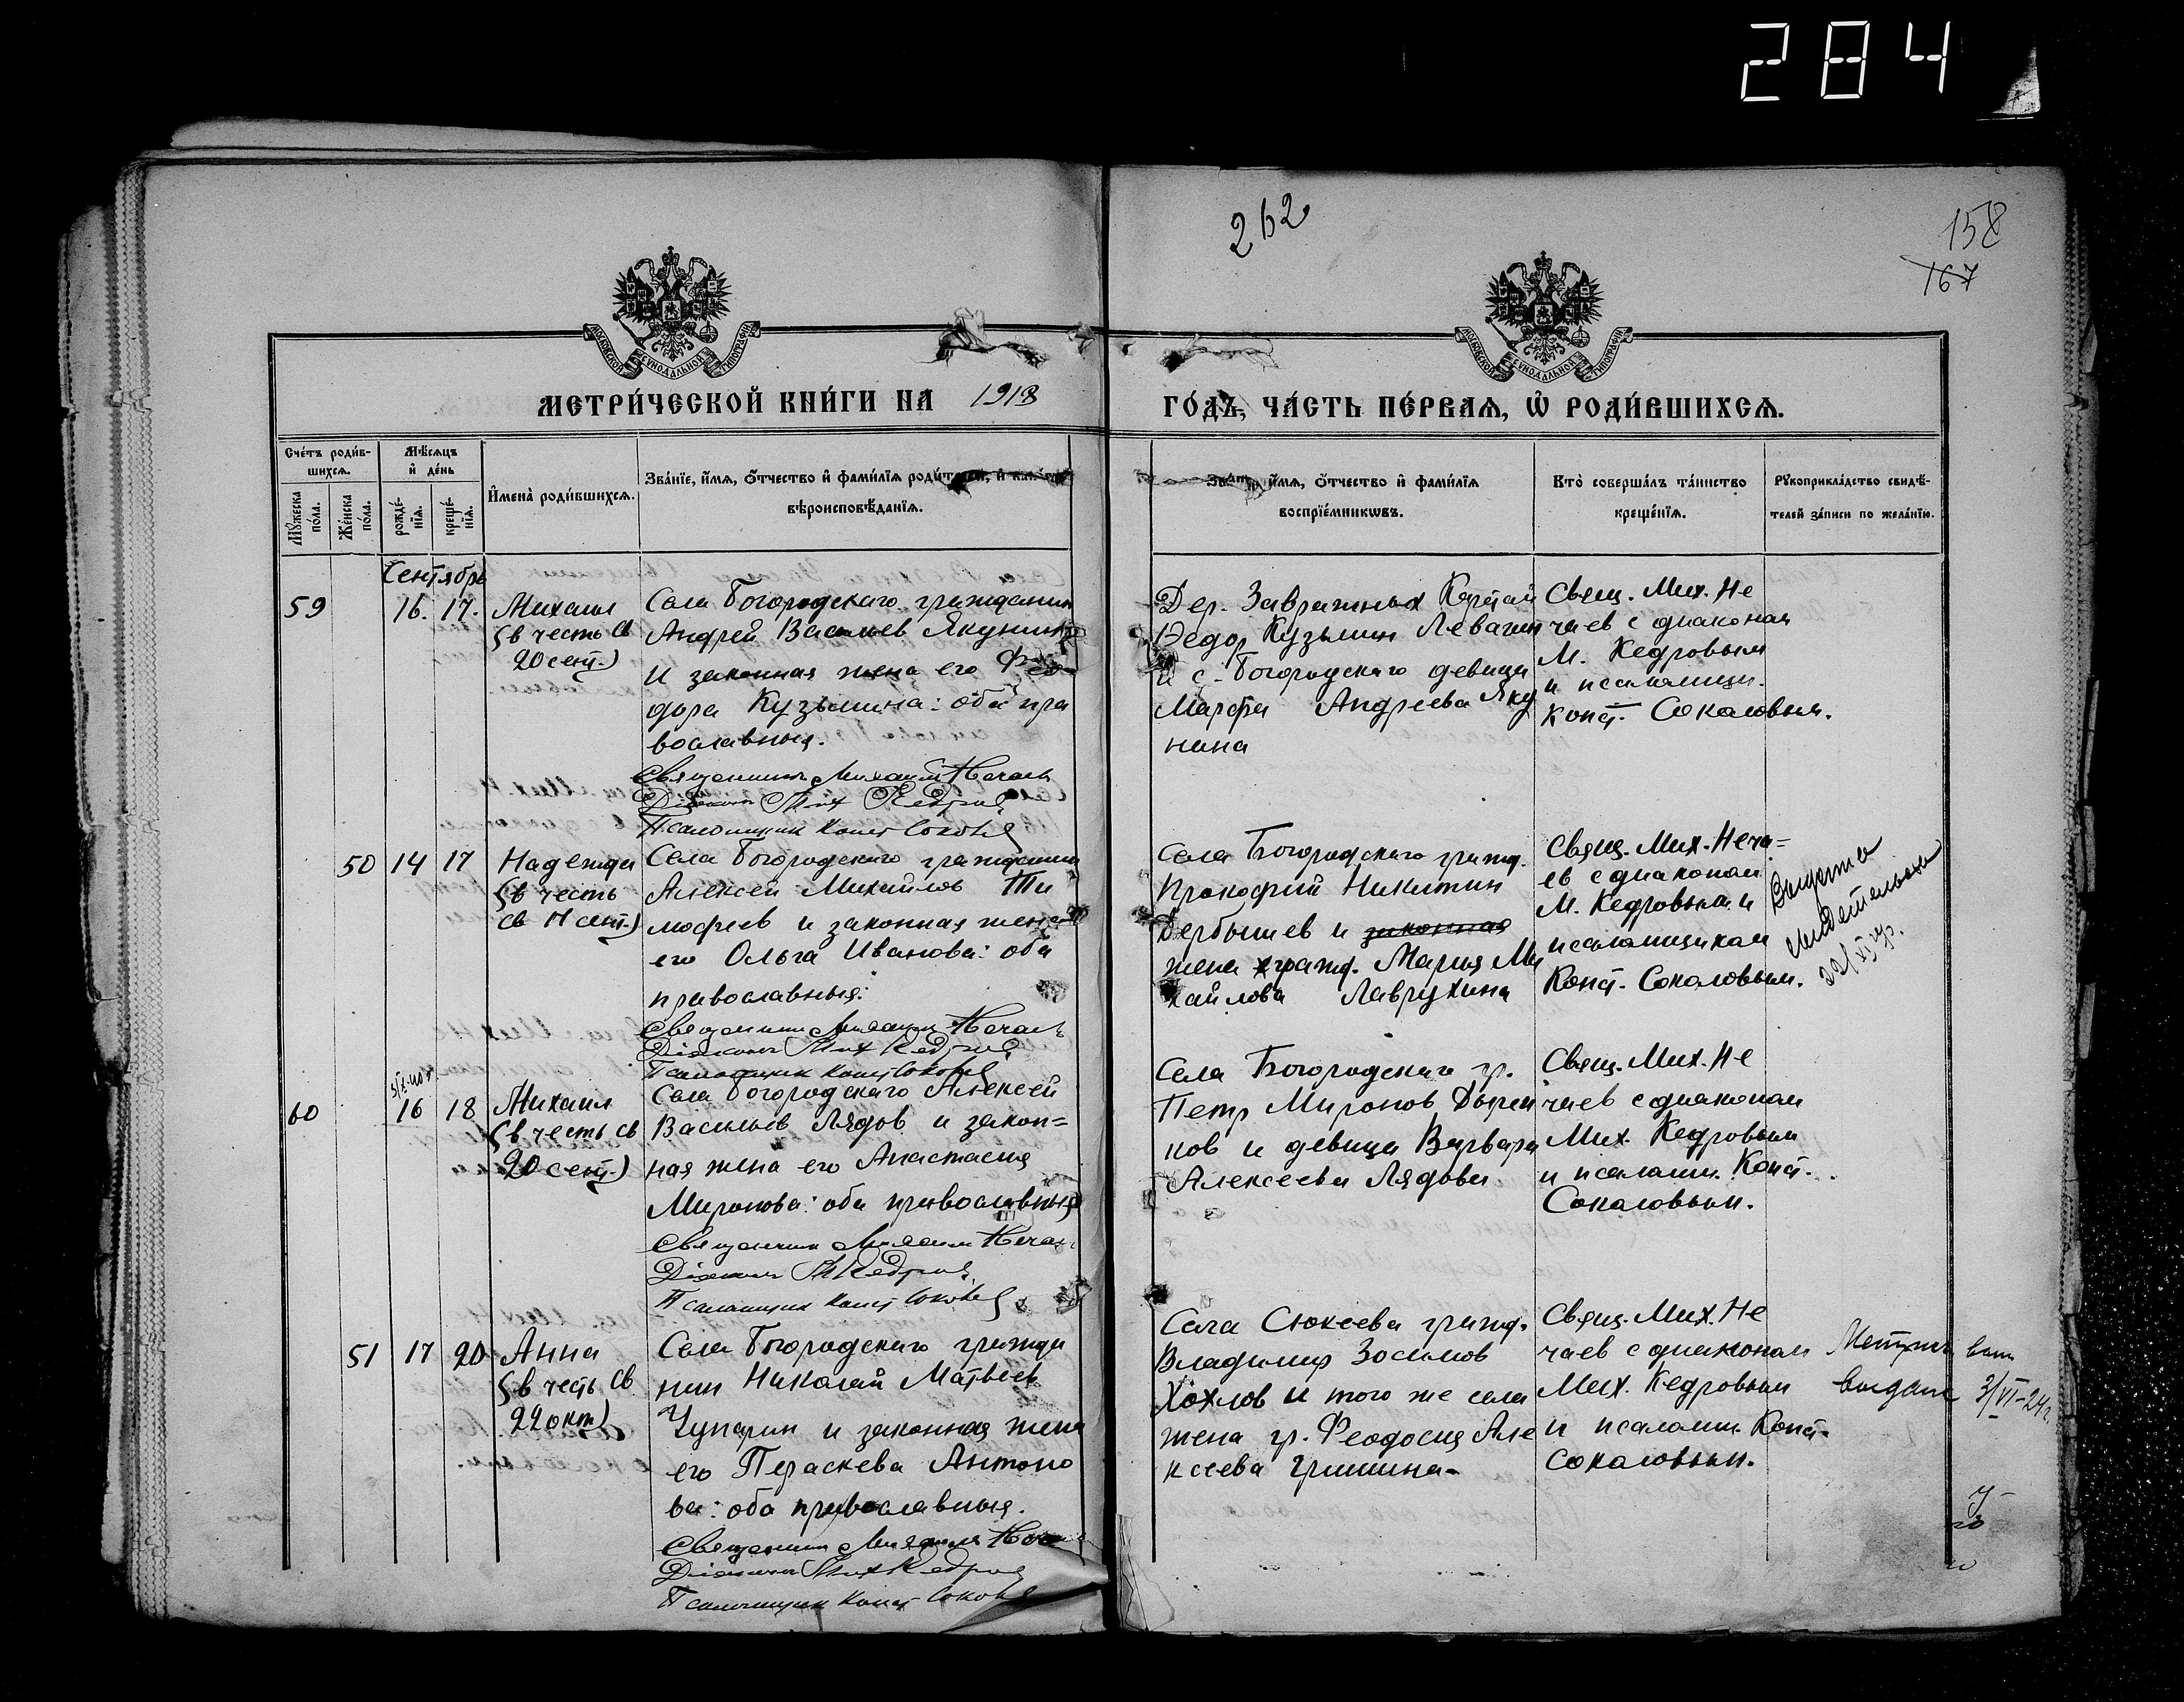 284
262
158
167
МОСКОВСКОЙ СѴНОДАЛЬНОЙ ТИПОГРАФІИ
МОСКОВСКОЙ СѴНОДАЛЬНОЙ ТИПОГРАФІИ
МЕТРИ́ЧЕСКОЙ КНИ́ГИ НА 1918 ГО́ДЪ, ЧА́СТЬ ПЕ́РВАѦ, Ѡ҆ РОДИ́ВШИХСѦ.
Сче́тъ роди́в-
шихсѧ.
Мꙋ́жеска по́ла.
Же́нска по́ла.
Мѣ́сѧцъ
и҆ де́нь
рожде́-
нїѧ.
креще́-
нїѧ.
И҆мена̀ роди́вшихсѧ.
Зва́нїе, и҆́мѧ, ѻ҆́тчество и҆ фами́лїѧ роди́телей, и҆
вѣроисповѣ́данїѧ.
и҆́мѧ, ѻ҆́тчество и҆ фами́лїѧ
воспрїе́мникѡвъ.
Кто̀ соверша́лъ та́инство
креще́нїѧ.
Рꙋкоприкла́дство свидѣ́-
телей за́писи по жела́нїю.
Сентябрь
59 16. 17. Михаил
(в честь св
20 сент.)
Села Богородскаго гражданин
Андрей Васильев Якунин
и законная жена его Фео
дора Кузьмина: оба пра
вославныя.
Священникъ Михаил Нечаев
Діаконъ Мих Кедров
Псаломщик Конст Соколов
Дер. Завражных
Федор Кузьмин Левагин
и с. Богородскаго девица
Марфа Андреева Яку
нина
Свящ. Мих. Не
чаев с диаконом
М. Кедровым
и псаломщи.
Конст. Соколовым.
50 14 17 Надежда
(в честь
св 17 сент.)
Села Богородскаго гражданин
Алексей Михайлов Ти
мофеев и законная жена
его Ольга Иванова: оба
православныя:
Священник Михаил Нечаев
Діаконъ Мих Кедров
Псаломщик Конст Соколов
Села Богородскаго гражд.
Прокофий Никитин
Дербышев и законная
жена гражд. Мария Ми
хайлова Лаврухина
Свящ. Мих. Неча=
ев с диаконом
М. Кедровым и
псаломщиком
Конст. Соколовым.
60 16 18 Михаил
(в честь св
20 сент.)
Села Богородскаго Алексей
Васильев Лядов и закон=
ная жена его Анастасия
Миронова: оба православныя
Священник Михаил Нечаев
Діаконъ М Кедров
Псаломщик Конст Соколов
Села Богородскаго гр.
Петр Миронов
ков и девица Варвара
Алексеева Лядова
Свящ. Мих. Не
чаев с диаконом
Мих. Кедровым
и псаломщ. Конст.
Соколовым.
51 17 20 Анна
(в честь св
22 окт)
Села Богородскаго гражда
нин Николай Матвеев
Чупарин и законная жена
его Параскева Антоно
ва: оба православныя.
Священник Михаил
Діаконъ Мих Кедров
Псаломщик Конст Соколов
Села Сюкеева гражд.
Владимир Зосимов
Хохлов и того же села
жена гр. Феодосия Але
ксеева Гришина-
Свящ. Мих. Не
чаев с диаконом
Мих. Кедровым
и псаломщ. Конст.
Соколовым.
выдана 3/VI-24г.